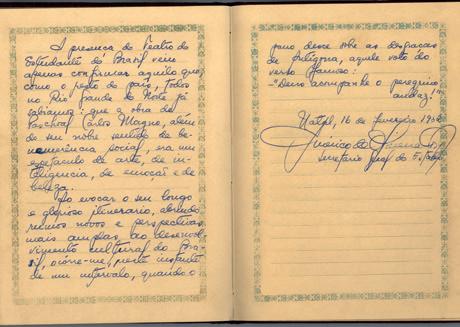 A presença do Teatro do
Estudante do Brasil veio
apenas confirmar aquilo que,
como o resto do país, todos
no Rio Grande do Norte já
sabíamos: que a obra de
Paschoal Carlos Magno, além
de seu nobre sentido de be-
nemerência social, era um
espetáculo de arte, de in-
teligencia, de emoção e de
beleza.
Ao evocar o seu longo
e glorioso itenerario, abrindo
rumos novos e perspectivas
mais amplas, ao desenvol-
vimento cultural do Bra-
sil, ocorre-me, neste instante
de um intervalo, quando o
pano desce sobre as desgraças
de Antígona, aquele voto do
verso famoso:
-"Deus acompanhe o peregrino
audaz!"
Natal, 16 de fevereiro, 1952
Américo de
Secretário Geral do Estado